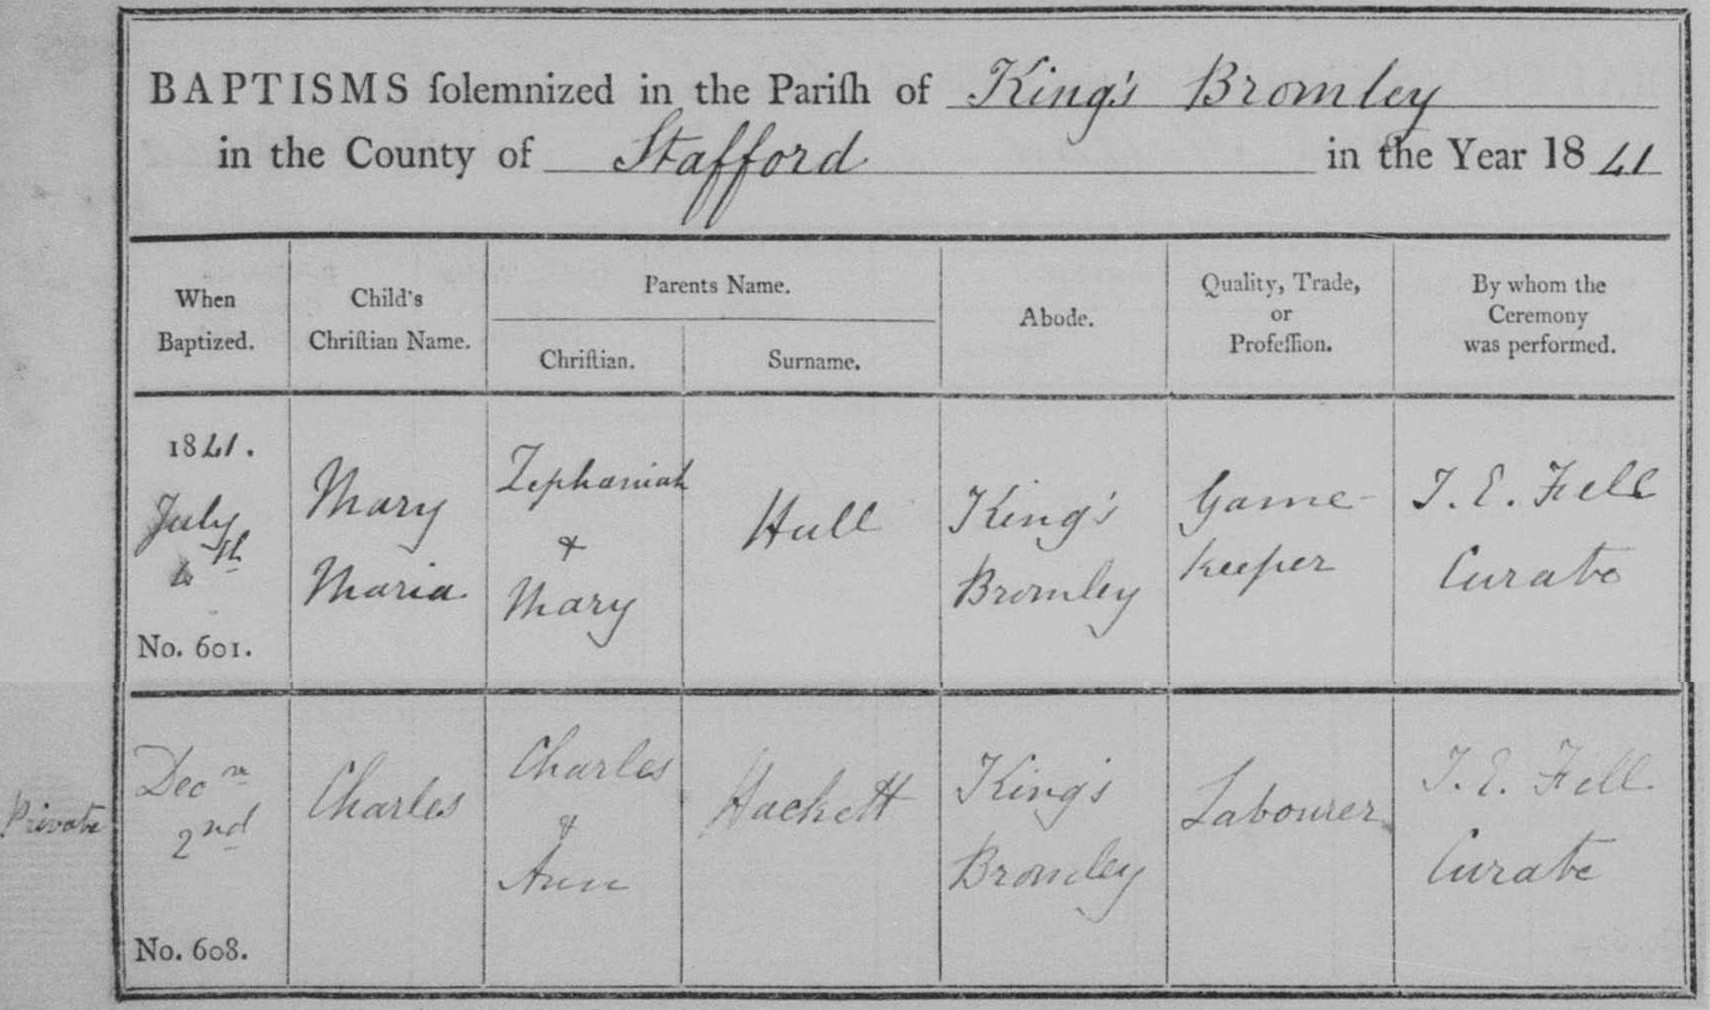 BAPTISMS ſolemnized in the Pariſh of King's Bromley
in the County of Stafford in the Year 1841
When
Baptized.
Child's
Chriſtian Name.
Parents Name.
Chriſtian.
Surname.
Abode.
Quality, Trade,
or
Profeſſion.
By whom the
Ceremony
was performed.
1841.
July
4th
No. 601.
Mary
Maria
Zephaniah
&
Mary
Hull
King's
Bromley
Game-
keeper
T. E. Fell
Curate
Private
Decr
2nd
No. 608.
Charles
Charles
&
Ann
Hackett
King's
Bromley
Labourer
T. E. Fell
Curate